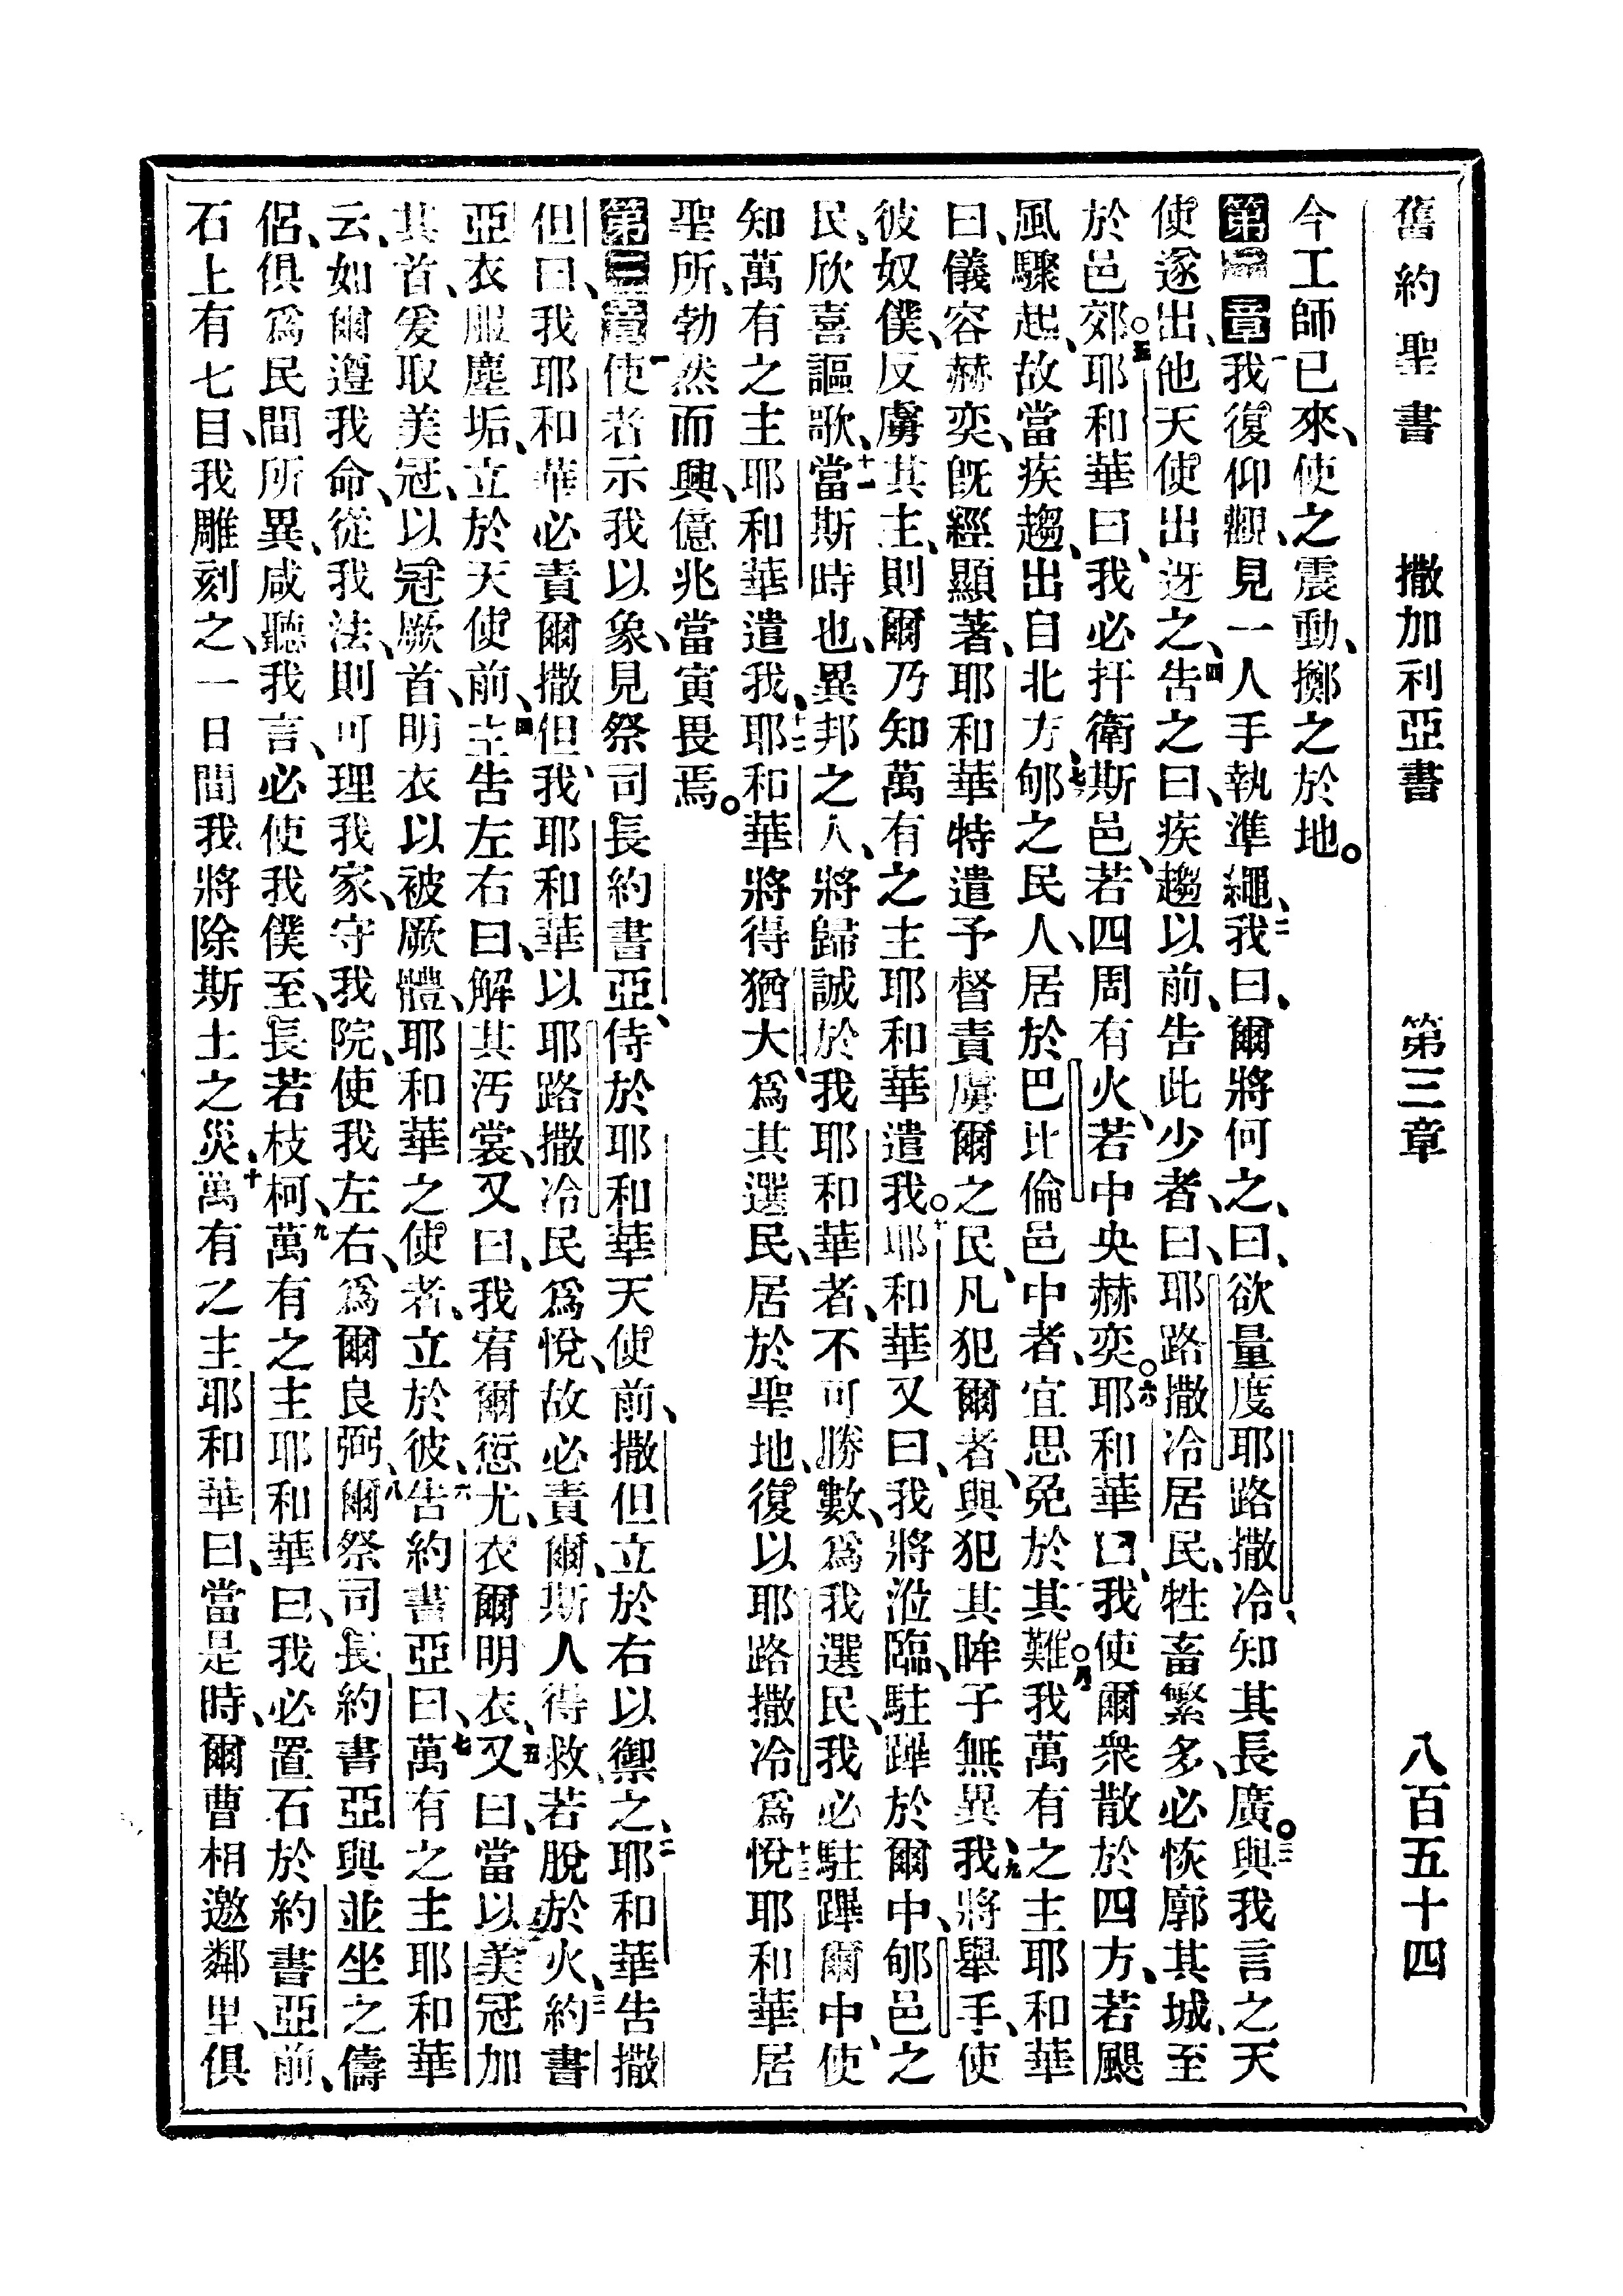 舊約聖書 撒加利亞書 第三章 八百五十四
今工師已來、使之震動、擲之於地。
第二章一我復仰觀、見一人手執準繩、二我曰、爾將何之、曰、欲量度耶路撒冷、知其長廣。三與我言之天
使遂出、他天使出迓之、四告之曰、疾趨以前、告此少者、曰、耶路撒冷居民、牲畜繁多、必恢廓其城、至
於邑郊。五耶和華曰、我必扞衛斯邑、若四周有火、若中央赫奕。六耶和華曰、我使爾衆散於四方、若颶
風驟起、故當疾趨、出自北方、七郇之民人、居於巴比倫邑中者、宜思免於其難。八我萬有之主耶和華
曰、儀容赫奕、旣經顯著、耶和華特遣予督責虜爾之民、凡犯爾者、與犯其眸子無異、九我將舉手、使
彼奴僕、反虜其主、則爾乃知萬有之主耶和華遣我。十耶和華又曰、我將涖臨、駐蹕於爾中、郇邑之
民、欣喜謳歌、十一當斯時也、異邦之人、將歸誠於我耶和華者、不可勝數、爲我選民、我必駐蹕爾中、使
知萬有之主耶和華遣我、十二耶和華將得猶大、爲其選民、居於聖地、復以耶路撒冷爲悅、十三耶和華居
聖所、勃然而興、億兆當寅畏焉。
第三章一使者示我以象、見祭司長約書亞、侍於耶和華天使前、撒但立於右以禦之、二耶和華告撒
但曰、我耶和華必責爾撒但、我耶和華以耶路撒冷民爲悅、故必責爾、斯人得救、若脫於火、三約書
亞衣服塵垢、立於天使前、四主告左右曰、解其汚裳、又曰、我宥爾愆尤、衣爾明衣、五又曰、當以美冠加
其首、爰取美冠、以冠厥首、明衣以被厥體、耶和華之使者、立於彼、六告約書亞曰、七萬有之主耶和華
云、如爾遵我命、從我法、則可理我家、守我院、使我左右、爲爾良弼、八爾祭司長約書亞與並坐之儔
侶、俱爲民間所異、咸聽我言、必使我僕至、長若枝柯、九萬有之主耶和華曰、我必置石於約書亞前、
石上有七目、我雕刻之、一日間我將除斯土之災、十萬有之主耶和華曰、當是時、爾曹相邀鄰里、俱